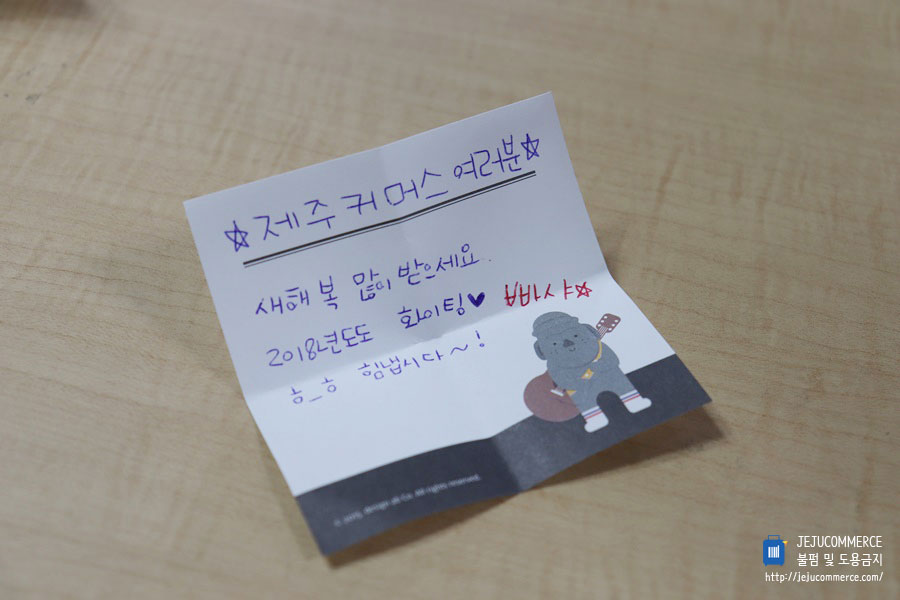 ☆제주커머스 여러분☆
새해 복 많이 받으세요.
2018년도도 화이팅♥
ㅎ_ㅎ 힘냅시다~!
© 2015. design ali Co. All rights reserved.
JEJUCOMMERCE
불펌 및 도용금지
http://jejucommerce.com/